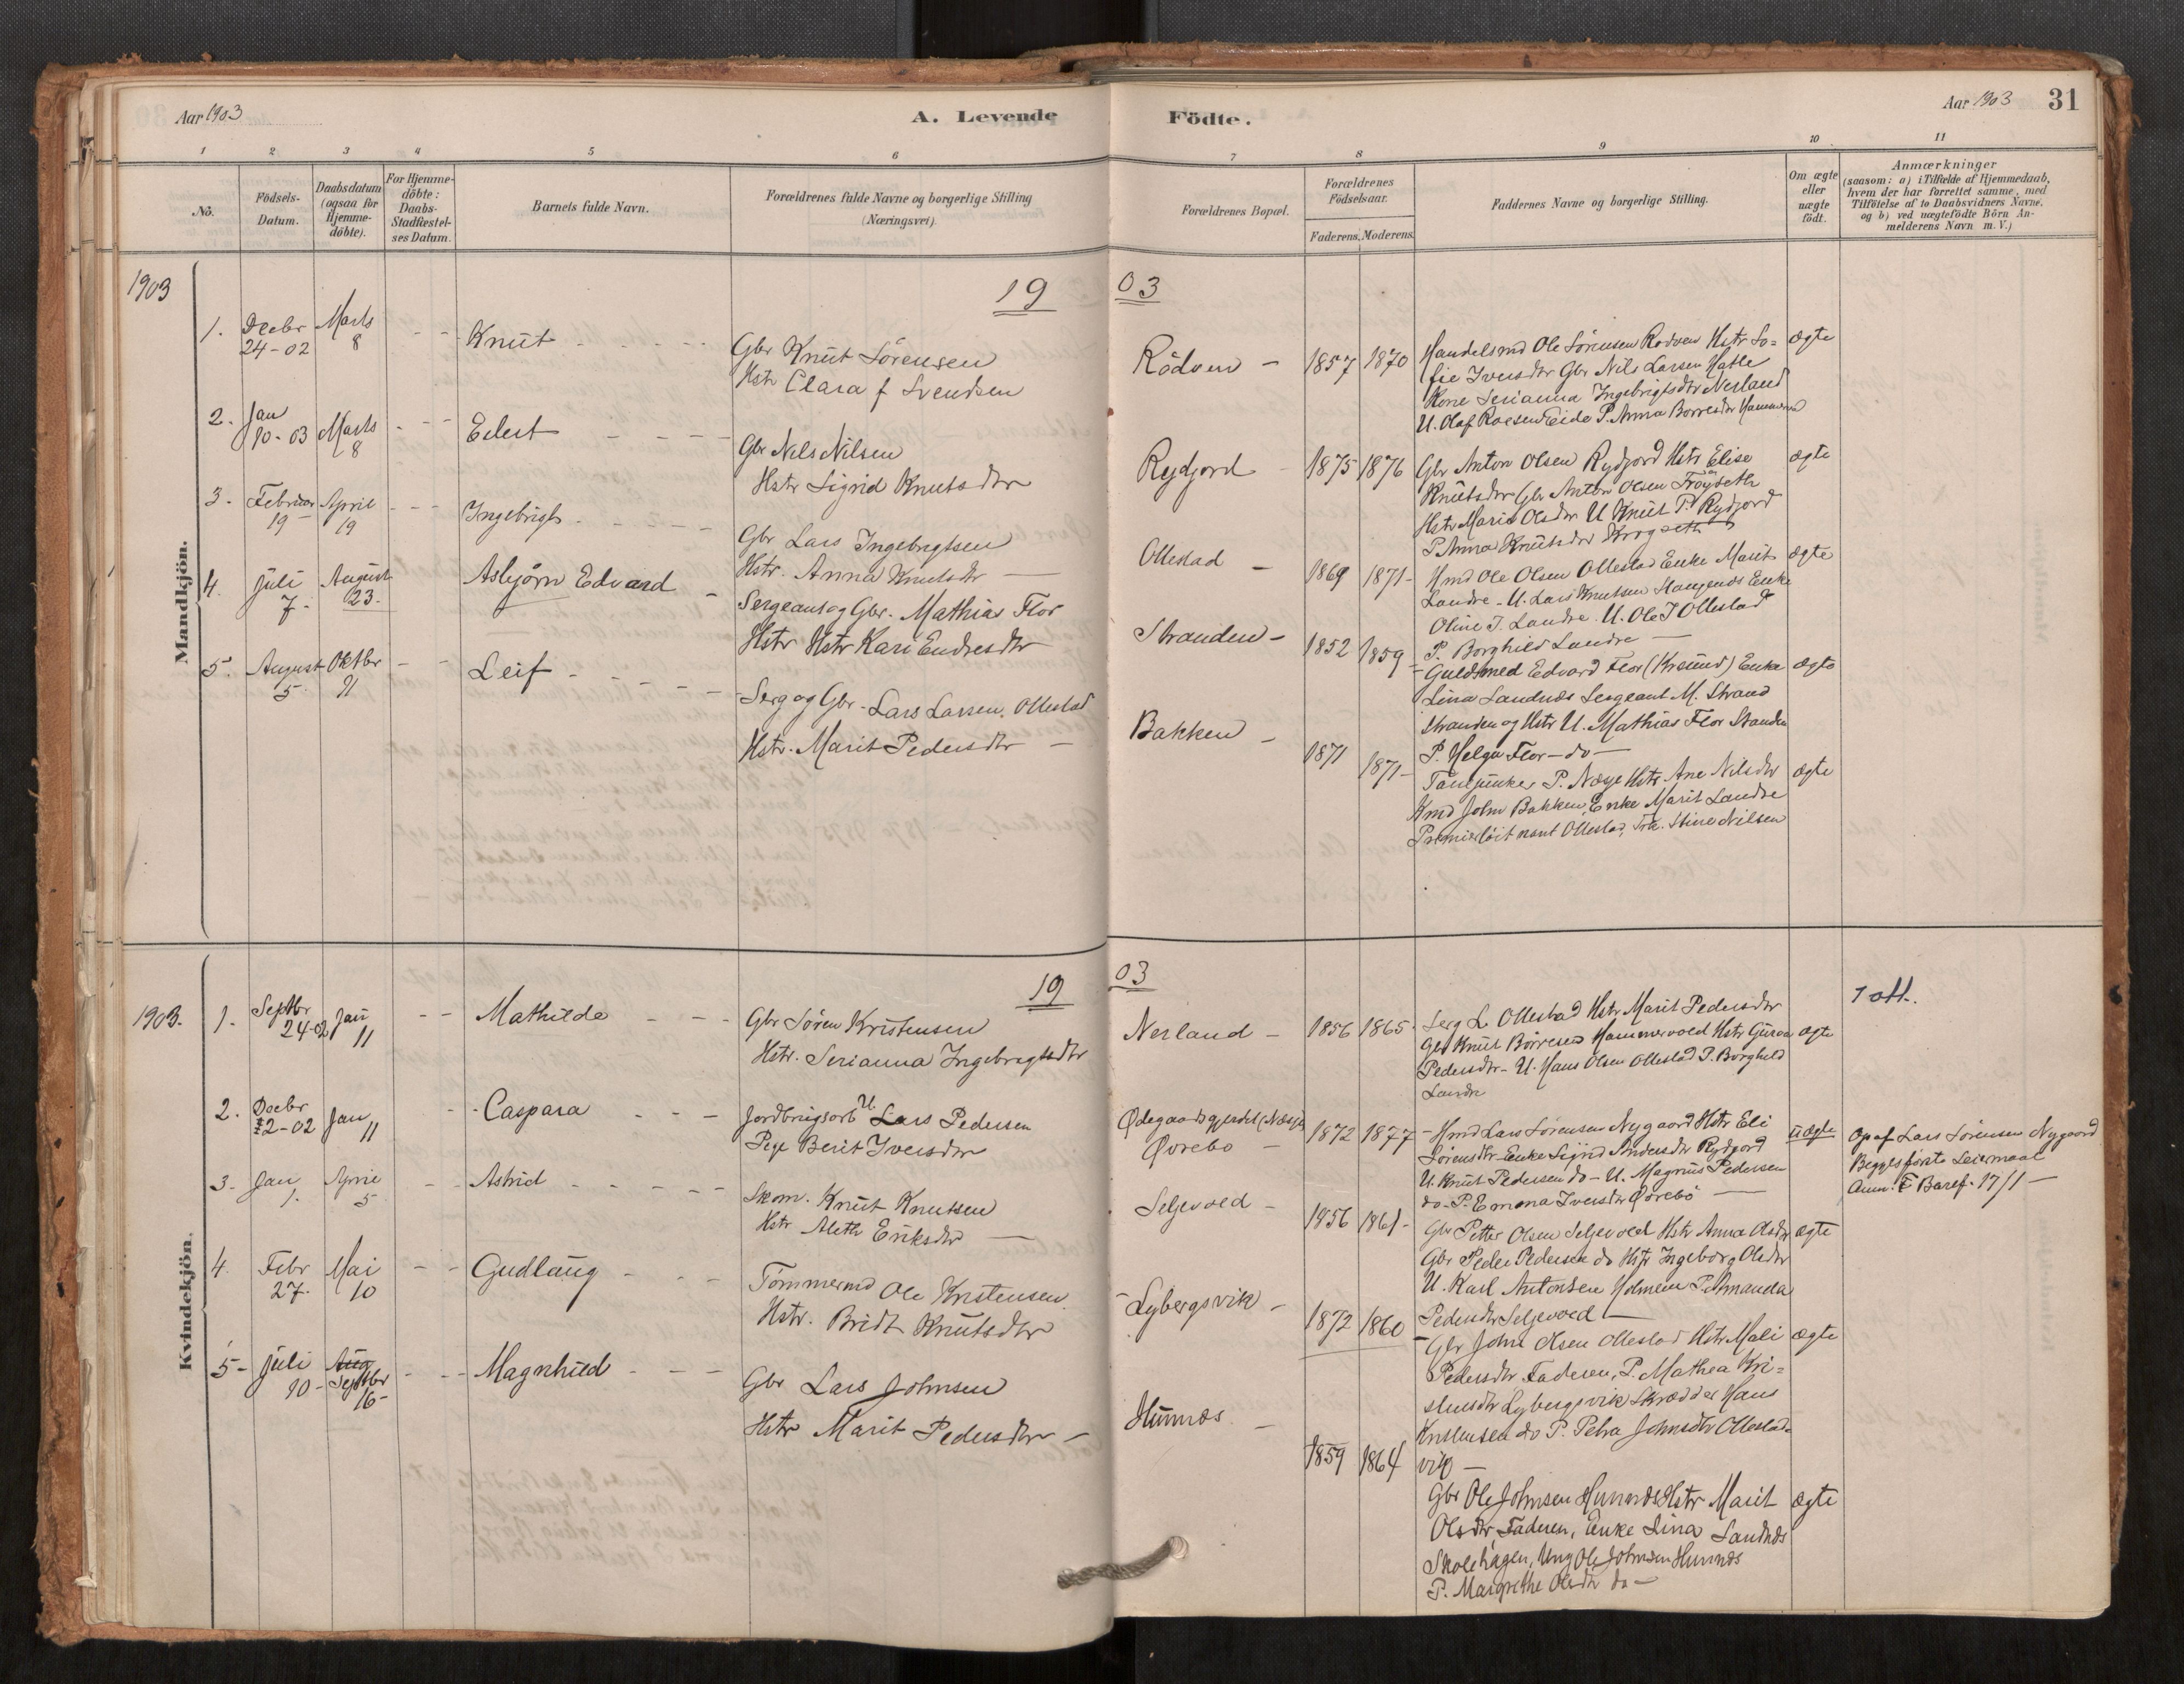 Aar 1903
A. Levende
Födte.
Aar 1903
31
1
2
3
4
5
6
7
8
9
10
11
No.
Födsels-
Datum.
Daabsdatum
(ogsaa for
Hjemme-
döbte).
For Hjemme-
döbte:
Daabs-
Stadfæstel-
ses Datum.
Barnets fulde Navn.
Forældrenes fulde Navne og borgerlige Stilling
(Næringsvei).
Forældrenes Bopæl.
Forældrenes
Födselsaar.
Faderens. Moderens.
Faddernes Navne og borgerlige Stilling.
Om ægte
eller
uægte
födt.
Anmærkninger
(saasom: a) i Tilfælde af Hjemmedaab,
hvem der har forrettet samme, med
Tilföielse af to Daabsvidners Navne,
og b) ved uægtefödte Börn An-
melderens Navn m. V.)
Mandkjön.
1903
19 03
1. Decbr 24-02
Marts 8
Knut
Gbr Knut Sörensen
Hstr Clara f Svendsen
Rödven - 1857 1870
Handelsmd Ole Sörensen Rodven Hstr So-
fie Iversdtr Gbr Nils Larsen Hatle
Kone Serianna Ingebrigtsdtr Nerland
U. Olaf Roesen Eide P. Anna Borresdtr
ægte
2. Jan 10-03
Marts 8
Eilert
Gbr Nils Nilsen
Hstr Sigrid Knutsdtr
Rydjord 1875 1876
Gbr Anton Olsen Rydjord Hstr Elise
Knutsdtr Gbr Anton Olsen Fröyseth
Hstr Marit Olsdtr U Knut P. Rydjord
P. Anna Knutsdtr
ægte
3. Februar 19
April 19
Ingebrigt
Gbr Lars Ingebrigtsen
Hstr. Anna Knutsdtr
Ollestad - 1869 1871
Hmd Ole Olsen Ollestad Enke Marit
Landre - U. Lars Knutsen Enke
Oline J. Landre U. Ole J Ollestad
P. Borghild Landre
ægte
4. Juli 7.
August 23.
Asbjørn Edvard
Sergeant og Gbr. Mathias Flor
Hstr Hstr Kari Endresdtr
Stranden - 1852 1859
Guldsmed Edvard Flor (Krsund) Enke
Lina Landnæs Sergeant M. Strand
Stranden og Hstr U. Mathias Flor Stranden
P. Helga Flor - do -
ægte
5. August 5
Oktbr 11
Leif
Serg og Gbr. Lars Larsen Ollestad
Hstr. Marit Pedersdtr
Bakken - 1871 1871
P. Næsje Hstr Ane Nilsdtr
Kmd John Bakken, Enke Marit Landre
Premierlöitnant Ollestad, Stine Nilsen
ægte
Kvindekjön.
1903.
19 03
1. Septbr 24-02
Jan 11
Mathilde
Gbr Sören Kristensen
Hstr. Serianna Ingebrigtsdtr
Nerland - 1856 1865
Serg L Ollestad Hstr Marit Pedersdtr
Gbr Knut Börresen Hammervold Hstr Guroa
Pedersdtr - U. Hans Olsen Ollestad P. Borghild
Landre
ægte
1 att.
2. Decbr 12-02
Jan 11
Caspara
Jordbrugsarb U. Lars Pedersen
Pige Berit Iversdtr
Ødegaardsgjerdet (Næsje)
Øvrebo - 1872 1877
Hmd Lars Sörensen Nygaard Hstr Eli
Sörensdtr Enke Sigrid Andersdtr Rydjord
U. Knut Pedersen do - U. Magnus Pedersen
do - P. Emma Iversdtr Øvrebö
uægte
Op af Lars Sörensen Nygaard
Begges förste Leiermaal
Anm. F Baref. 17/1 -
3. Jan 1.
April 5
Astrid
Skom. Knut Knutsen
Hstr Aleth Eriksdtr
Seljevold - 1856 1861
Gbr Petter Olsen Seljevold Hstr Anna Olsdtr
Gbr Peder Pedersen do Hstr Ingeborg Olsdtr
U. Karl Antonsen Holmem P. Amanda
Pedersdtr Seljevold
ægte
4. Febr 27.
Mai 10
Gudlaug
Tömmermd Ole Kristensen
Hstr. Bridt Knutsdtr
Lybergsvik - 1872 1860
Gbr John Olsen Ollestad Hstr Mali
Pedersdtr Faderen, P. Mathea Kri-
stensdtr Lybergsvik Skrædder Hans
Kristensen do P. Petra Johnsdtr Ollestad-
vik -
ægte
5. Juli 10 -
Aug
Septbr 16 -
Magnhild
Gbr Lars Johnsen
Hstr Marit Pedersdtr
Hunnæs - 1859 1864
Gbr Ole Johnsen Hunnæs Hstr Marit
Olsdtr Faderen, Enke Lina Landnæs
Skolehagen, Ung Ole Johnsen Hunnæs
P. Margrethe Olsdtr do -
ægte